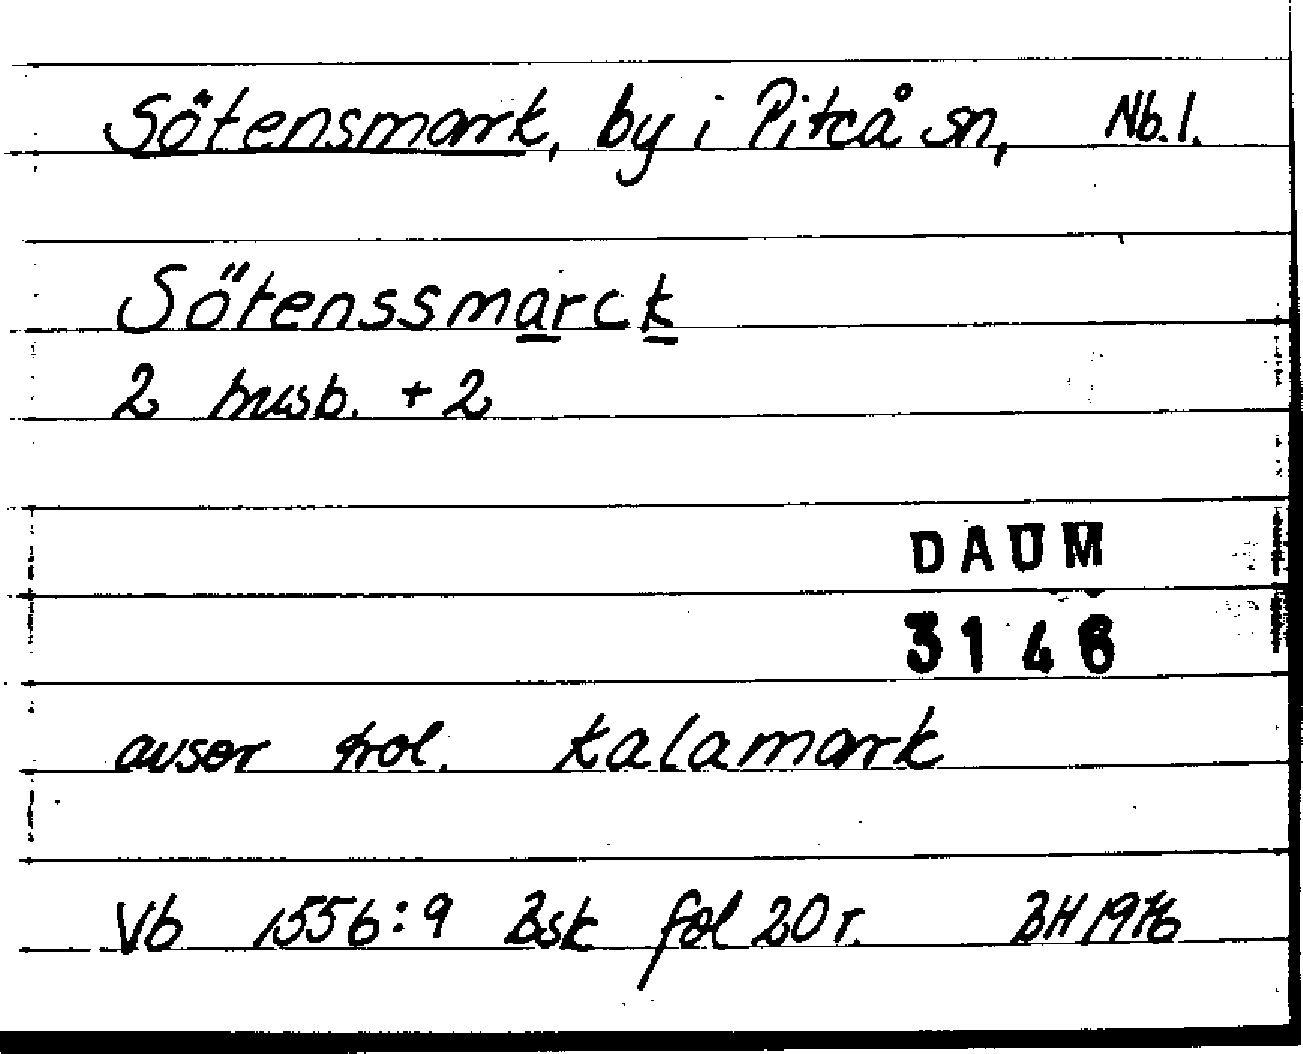 Sötensmark, by i Piteå sn, Nb.l.
Sötenssmarck
2 husb. + 2
DAUM
3146
avser trol. Kalamark
Vb 1556:9 Bsk fol 20 r. BH 1976